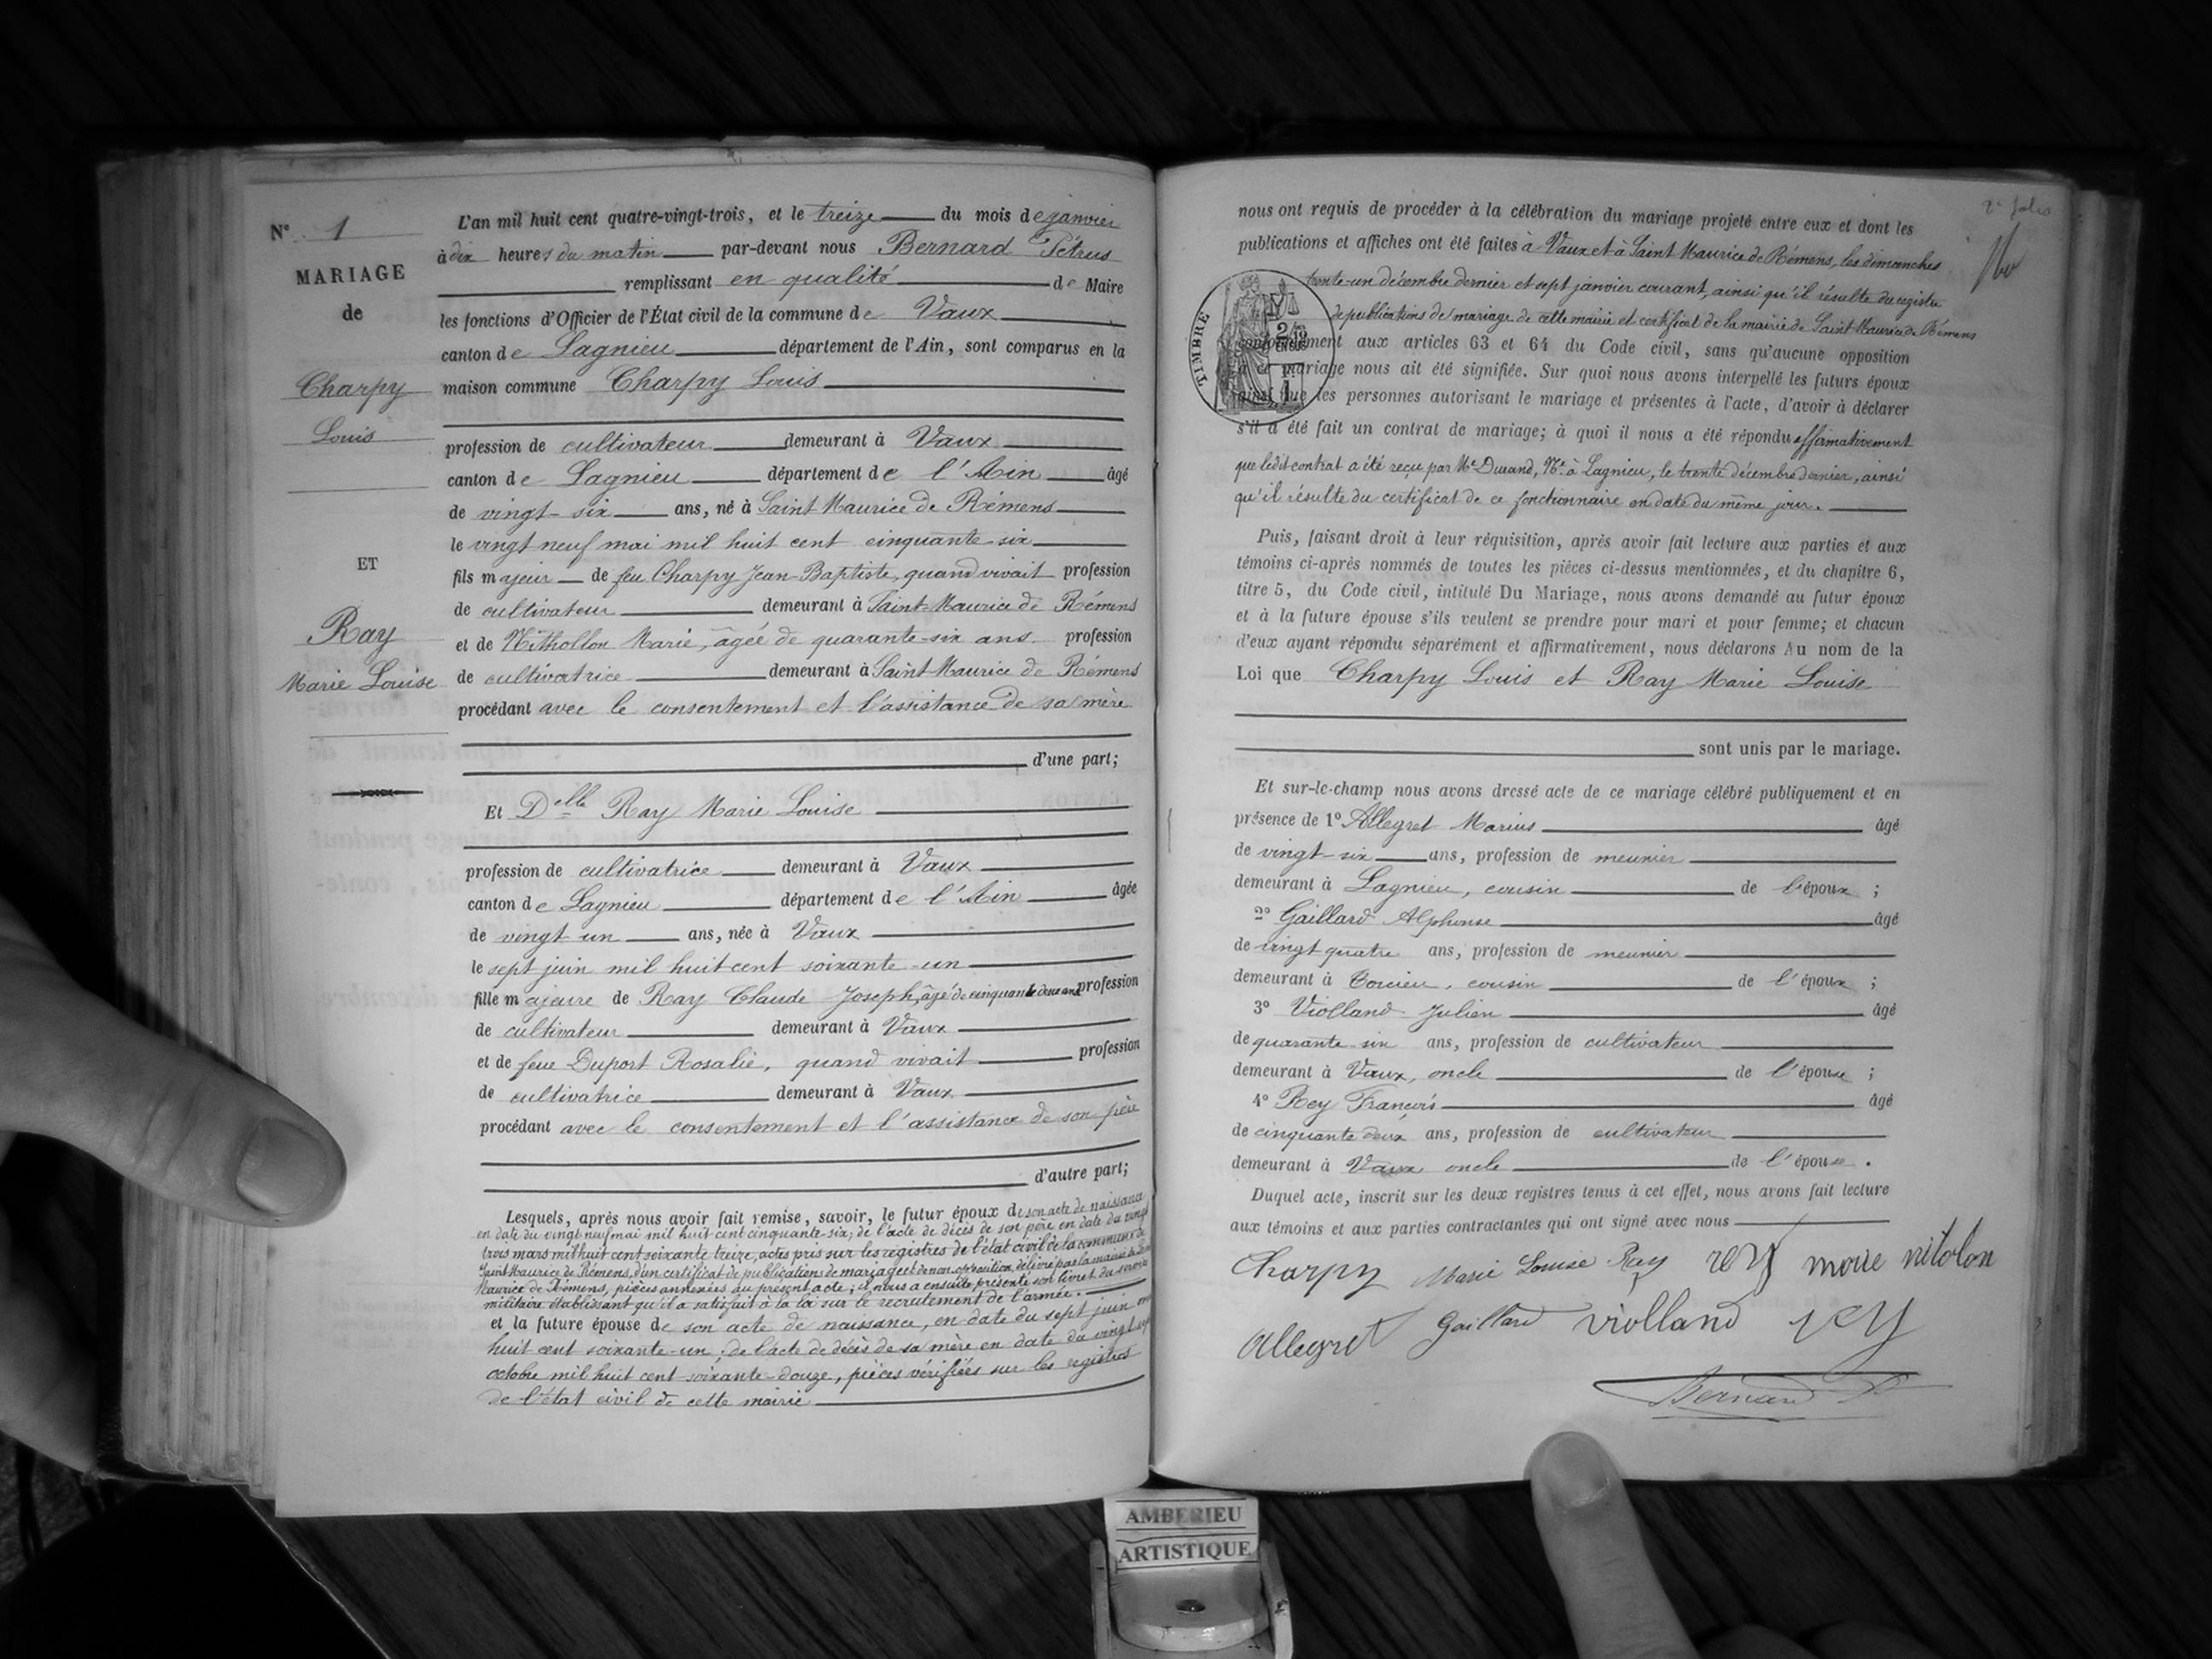 N° 1
MARIAGE
de
Charpy
Louis
ET
Ray
Marie Louise
L'an mil huit cent quatre-vingt-trois, et le treize du mois de janvier
à dix heures du matin par-devant nous Bernard Pétrus
remplissant en qualité de Maire
les fonctions d'Officier de l'État civil de la commune de Vaux
canton de Lagnieu département de l'Ain, sont comparus en la
maison commune Charpy Louis
profession de cultivateur demeurant à Vaux
canton de Lagnieu département de l'Ain âgé
de vingt-six ans, né à Saint Maurice de Rémens
le vingt neuf mai mil huit cent cinquante six
fils majeur de feu Charpy Jean-Baptiste, quand vivait profession
de cultivateur demeurant à Saint-Maurice de Rémens
et de Nithollon Marie, âgée de quarante-six ans profession
de cultivatrice demeurant à Saint-Maurice de Rémens
procédant avec le consentement et l'assistance de sa mère
d'une part;
Et Delle Ray Marie Louise
profession de cultivatrice demeurant à Vaux
canton de Lagnieu département de l'Ain âgée
de vingt un ans, née à Vaux
le sept juin mil huit cent soixante-un
fille majeure de Ray Claude Joseph, âgé de cinquante deux ans profession
de cultivateur demeurant à Vaux
et de feue Duport Rosalie, quand vivait profession
de cultivatrice demeurant à Vaux
procédant avec le consentement et l'assistance de son père
d'autre part;
Lesquels, après nous avoir fait remise, savoir, le futur époux de son acte de naissance
en date du vingt neuf mai mil huit cent cinquante-six; de l'acte de décès de son père en date du vingt
trois mars mil huit cent soixante treize, actes pris sur les registres de l'état civil de la commune de
Saint Maurice de Rémens, d'un certificat de publications de mariage et de non opposition, délivré par la mairie de
Maurice de Rémens, pièces annexées au présent acte; il nous a ensuite présenté son livret du service
militaire établissant qu'il a satisfait à la loi sur le recrutement de l'armée.
et la future épouse de son acte de naissance, en date du sept juin
huit cent soixante-un; de l'acte de décès de sa mère en date du vingt
octobre mil huit cent soixante-douze, pièces vérifiées sur les registres
de l'état civil de cette mairie
2e folio
nous ont requis de procéder à la célébration du mariage projeté entre eux et dont les
publications et affiches ont été faites à Vaux et à Saint Maurice de Rémens, les dimanches
trente-un décembre dernier et sept janvier courant, ainsi qu'il résulte du registre
de publications de mariage de cette mairie et certificat de la mairie de Saint Maurice de Rémens
conformément aux articles 63 et 64 du Code civil, sans qu'aucune opposition
à ce mariage nous ait été signifiée. Sur quoi nous avons interpellé les futurs époux
ainsi que les personnes autorisant le mariage et présentes à l'acte, d'avoir à déclarer
s'il a été fait un contrat de mariage; à quoi il nous a été répondu affirmativement
que ledit contrat a été reçu par Me Durand, Nre à Lagnieu, le trente décembre dernier, ainsi
qu'il résulte du certificat de ce fonctionnaire en date du même jour.
TIMBRE
Puis, faisant droit à leur réquisition, après avoir fait lecture aux parties et aux
témoins ci-après nommés de toutes les pièces ci-dessus mentionnées, et du chapitre 6,
titre 5, du Code civil, intitulé Du Mariage, nous avons demandé au futur époux
et à la future épouse s'ils veulent se prendre pour mari et pour femme; et chacun
d'eux ayant répondu séparément et affirmativement, nous déclarons Au nom de la
Loi que Charpy Louis et Ray Marie Louise
sont unis par le mariage.
Et sur-le-champ nous avons dressé acte de ce mariage célébré publiquement et en
présence de 1° Allegret Marius âgé
de vingt-six ans, profession de meunier
demeurant à Lagnieu, cousin de l'époux ;
2° Gaillard Alphonse âgé
de vingt quatre ans, profession de meunier
demeurant à Torcieu, cousin de l'époux ;
3° Violland Julien âgé
de quarante six ans, profession de cultivateur
demeurant à Vaux, oncle de l'épouse ;
4° Rey François âgé
de cinquante deux ans, profession de cultivateur
demeurant à Vaux oncle de l'épouse.
Duquel acte, inscrit sur les deux registres tenus à cet effet, nous avons fait lecture
aux témoins et aux parties contractantes qui ont signé avec nous
Charpy Marie Louise Ray rey marie nitolon
Allegret Gaillard violland rey
Bernard P
AMBERIEU
ARTISTIQUE